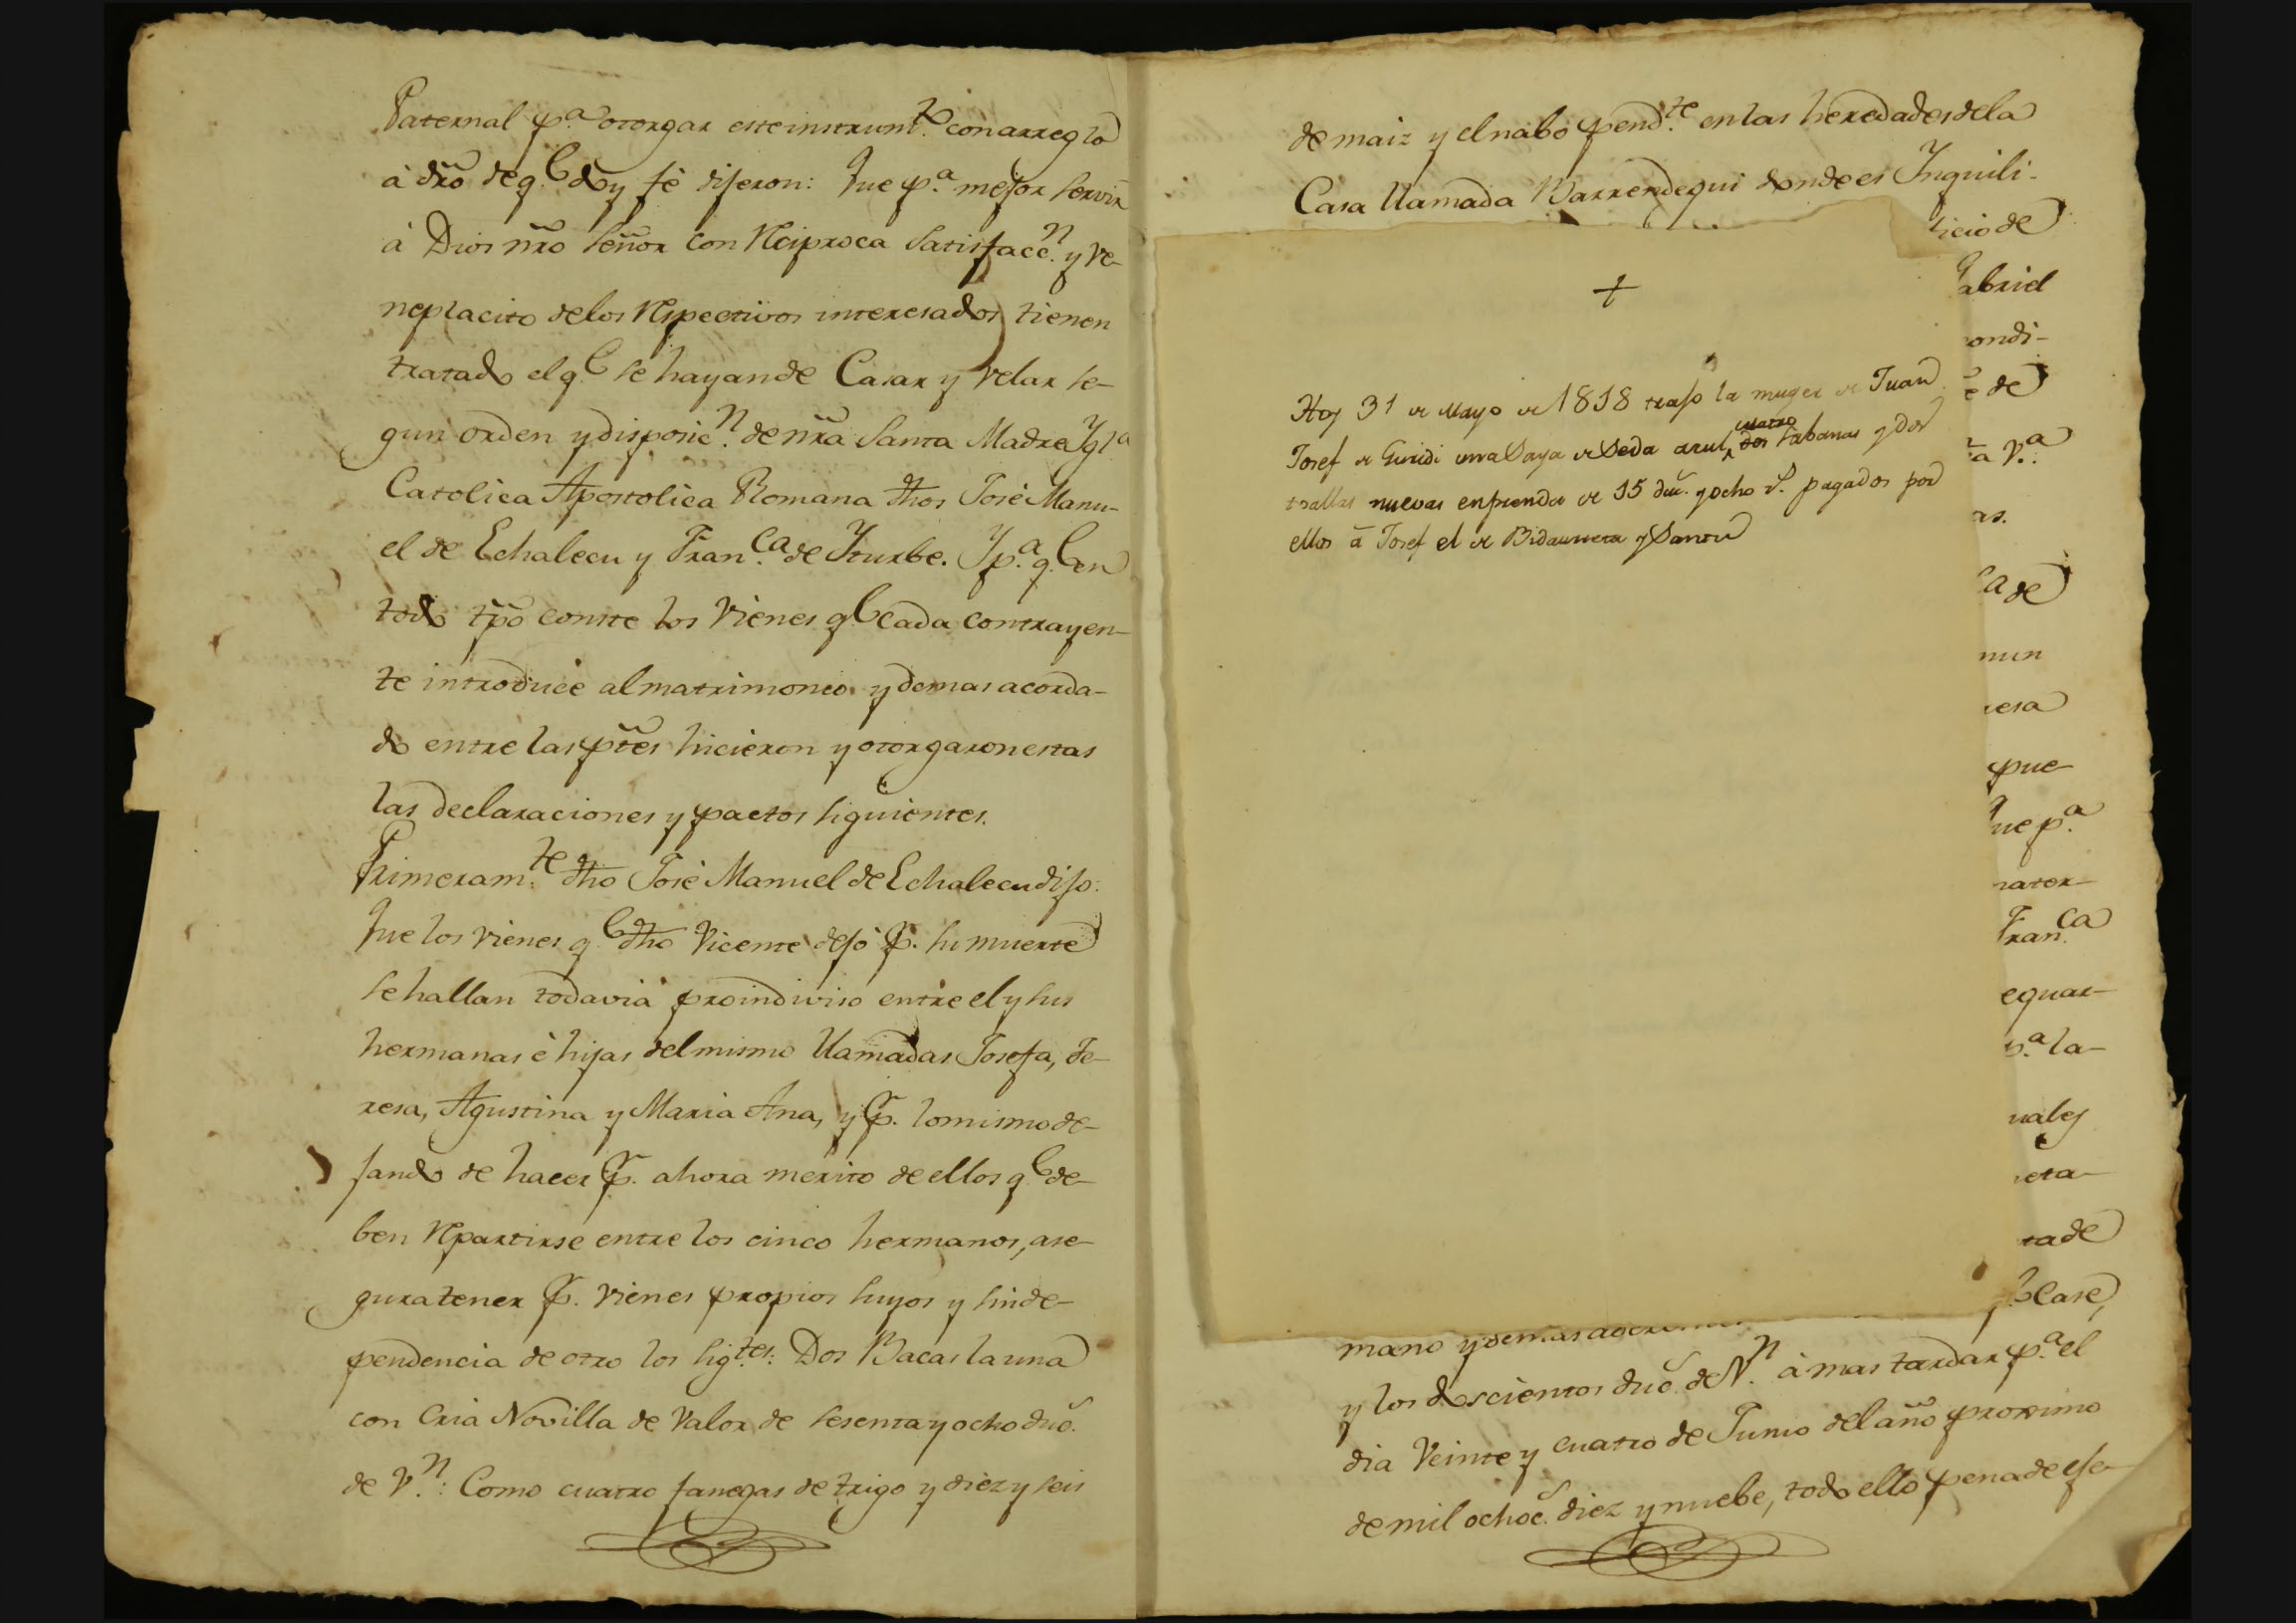 Paternal p.ª otorgar este instrum.te con arreglo
à dro de q.e doy fè dijeron: Que p.ª mejor servir
à Dios nro señor con reciproca satisfacc.n y ve-
neplacito de los respectivos interesados tienen
tratado el q.e se hayan de Casar y velar se-
gun orden y disposic.n de nra Santa Madre Ygl.ª
Catolica Apostolica Romana dhos José Manu-
el de Echalecu y Fran.ca de Yturbe. Y p.ª q.e en
todo tpo conste los vienes q.e cada contrayen-
te introduce al matrimonio y demas acorda-
do entre las ptes hicieron y otorgaron estas
las declaraciones y pactos siguientes.
Primeram.te dho José Manuel de Echalecu dijo:
Que los vienes q.e dho Vicente dejó p.r su muerte
se hallan todavia proindiviso entre el y sus
hermanas è hijas del mismo llamadas Josefa, Te-
resa, Agustina y Maria Ana, y p.r lo mismo de-
jando de hacer p.r ahora merito de ellos q.e de-
ben repartirse entre los cinco hermanos, ase-
gura tener p.r vienes propios suyos y sin de-
pendencia de otro los sig.tes: Dos Bacas la una
con Cria Novilla de valor de sesenta y ocho duc.
de V.n: Como cuatro fanegas de trigo y diez y seis
de maiz y el nabo pend.te en las heredades de la
Casa llamada Barrendegui donde es Ynquili-
icio de
abriel
ondi-
e de
a V.ª
as.
ca de
mun
esa
pue-
que p.ª
rater-
Fran.ca
eguar-
p.ª la-
uales
eta-
ta de
Case,
+
Hoy 31 de Mayo de 1818 trajo la muger de Juan
Josef de Guridi una Saya de Seda azul, dos cuatro sabanas y dos
toallas nuevas en prenda de 15 duc. y ocho r.s pagados por
ellos à Josef el de Bidaurreta y Santu
mano y demas
y los doscientos duc. de V.n à mas tardar p.ª el
dia Veinte y cuatro de Junio del año proximo
de mil ochoc. diez y nuebe, todo ello pena de eje-